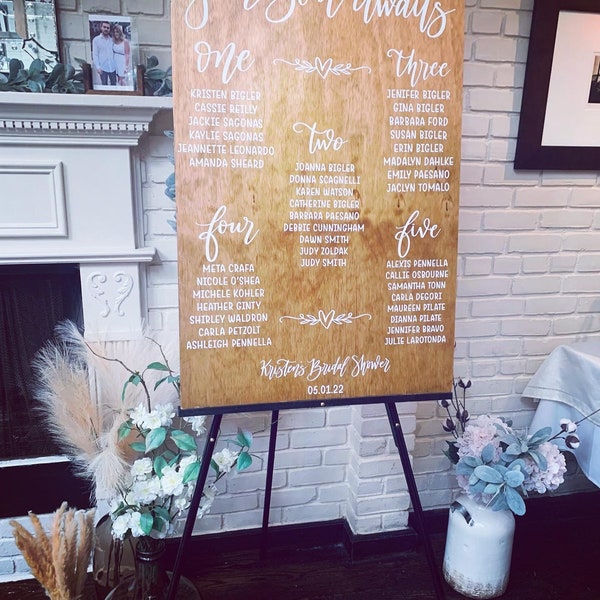 your Seat awaits
one
KRISTEN BIGLER
CASSIE REILLY
JACKIE SAGONAS
KAYLIE SAGONAS
JEANNETTE LEONARDO
AMANDA SHEARD
two
JOANNA BIGLER
DONNA SCAGNELLI
KAREN WATSON
CATHERINE BIGLER
BARBARA PAESANO
DEBBIE CUNNINGHAM
DAWN SMITH
JUDY ZOLDAK
JUDY SMITH
three
JENIFER BIGLER
GINA BIGLER
BARBARA FORD
SUSAN BIGLER
ERIN BIGLER
MADALYN DAHLKE
EMILY PAESANO
JACLYN TOMALO
four
META CRAFA
NICOLE O'SHEA
MICHELE KOHLER
HEATHER GINTY
SHIRLEY WALDRON
CARLA PETZOLT
ASHLEIGH PENNELLA
five
ALEXIS PENNELLA
CALLIE OSBOURNE
SAMANTHA TONN
CARLA DEGORI
MAUREEN PILATE
DIANNA PILATE
JENNIFER BRAVO
JULIE LAROTONDA
Kristen's Bridal Shower
05.01.22